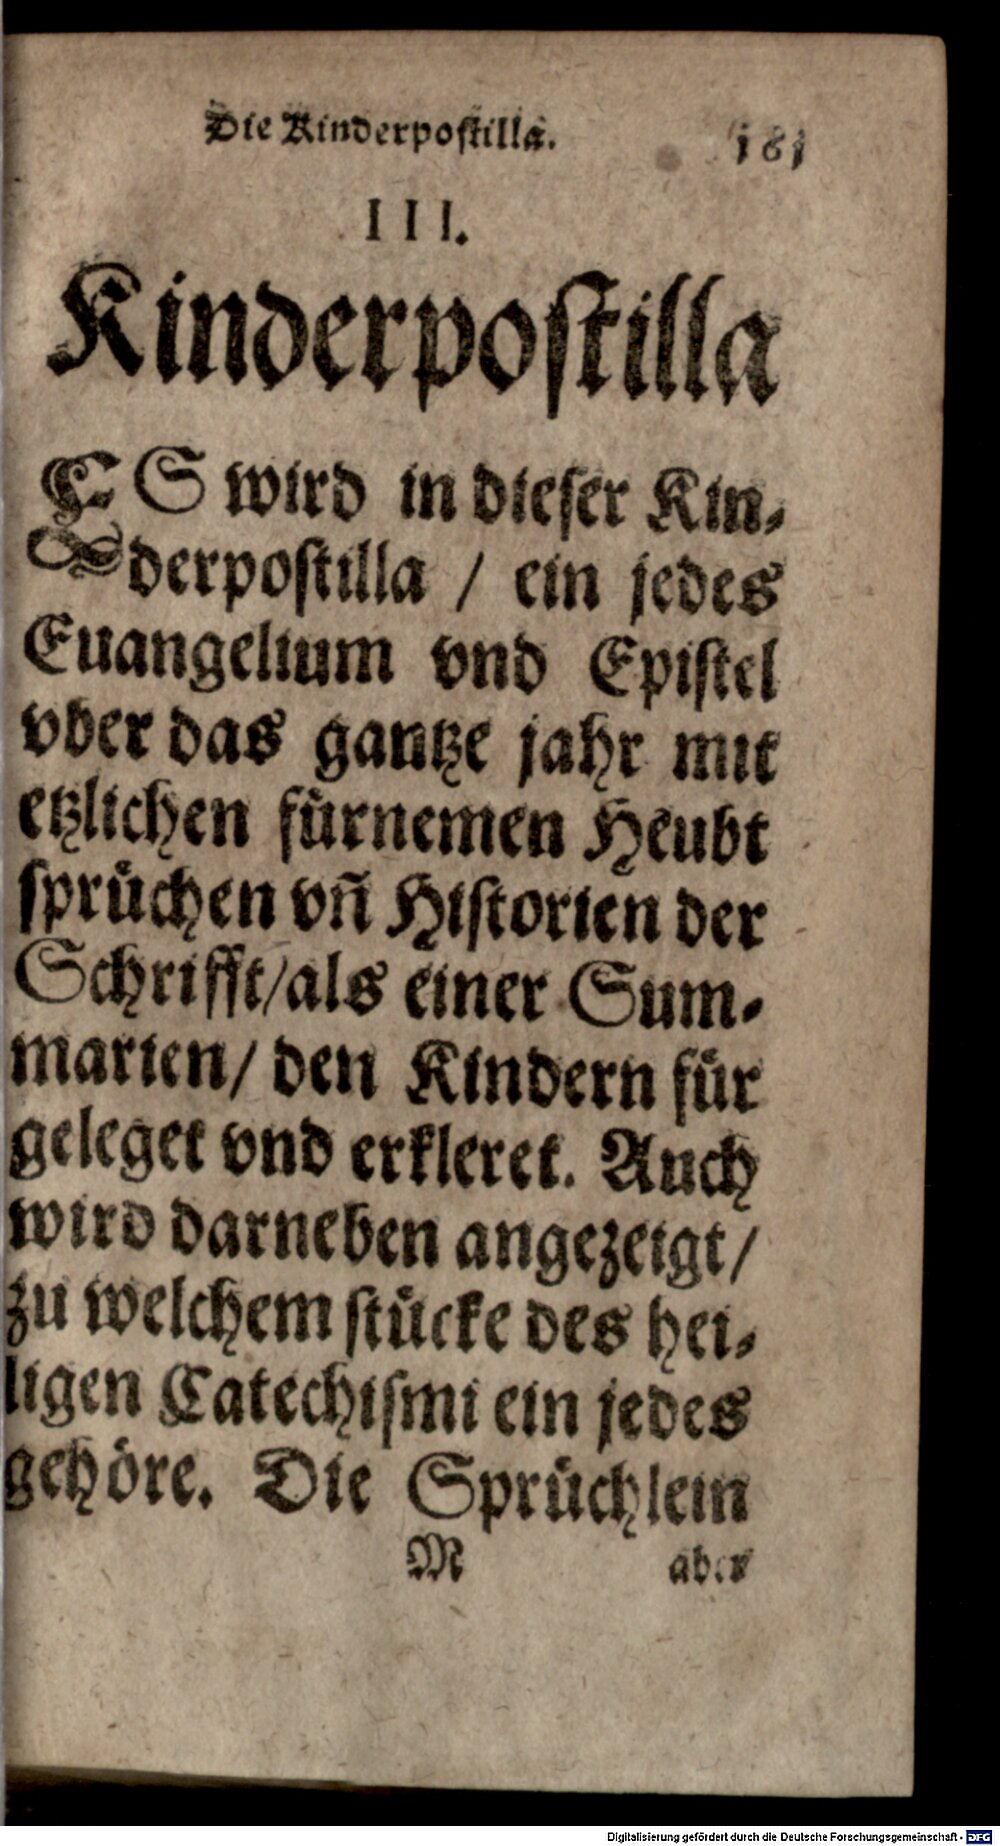 Die Kinderpostilla. 181
III.
Kinderpostilla
ES wird in dieser Kin-
derpostilla / ein jedes
Euangelium vnd Epistel
vber das gantze jahr mit
etzlichen fürnemen Heubt
sprüchen vñ Historien der
Schrifft/als einer Sum-
marien/ den Kindern für
geleget vnd erkleret. Auch
wird darneben angezeigt/
zu welchem stücke des hei-
ligen Catechismi ein jedes
gehöre. Die Sprüchlein
M aber
Digitalisierung gefördert durch die Deutsche Forschungsgemeinschaft - DFG